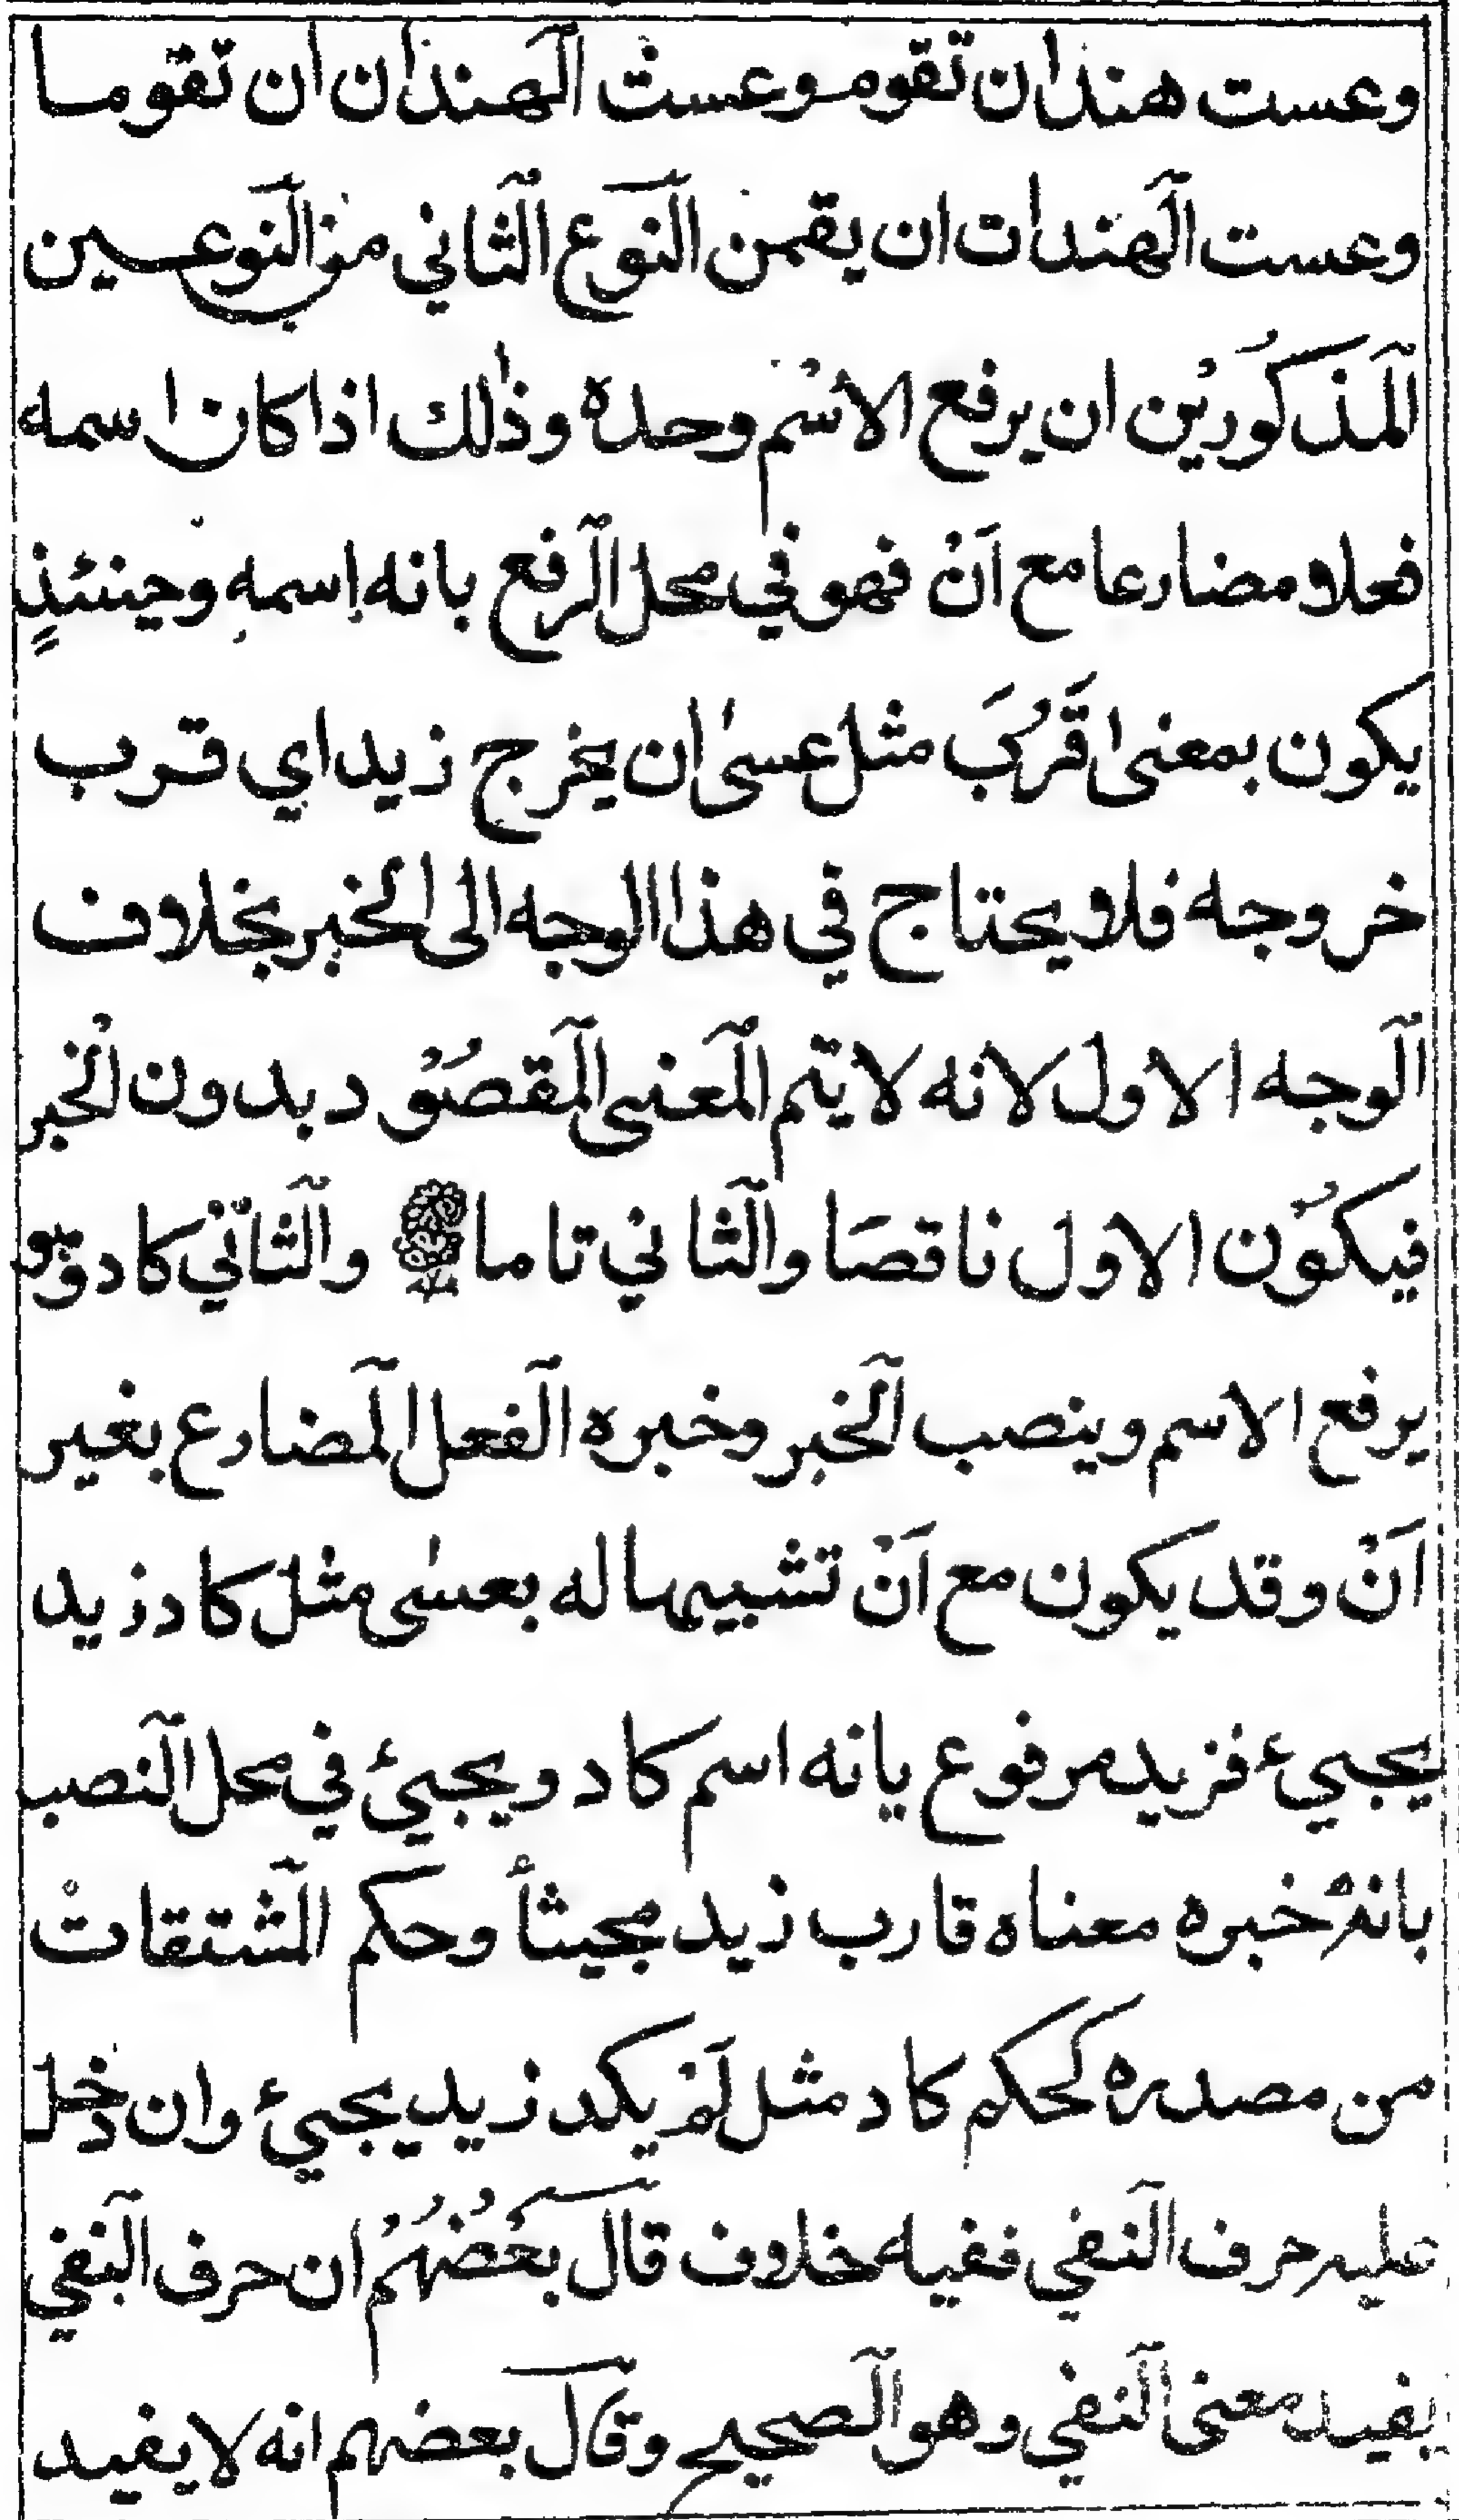 وعست هند ان تقوم وعست الهندان ان تقوما
وعست الهندات ان يقمن النوع الثاني من النوعين
المذكورين ان يرفع الاسم وحده وذلك اذا كان اسمه
فعلا مضارعا مع اَنْ فهو في محل الرفع بانه إسمه وحينئذٍ
يكون بمعنى قَرُبَ مثل عسى ان يخرج زيد اي قرب
خروجه فلا يحتاج في هذا الوجه الى الخبر بخلاف
الوجه الاول لانه لا يتم المعنى المقصود بدون الخبر
فيكون الاول ناقصا والثاني تاما والثاني كاد وهو
يرفع الاسم وينصب الخبر وخبره الفعل المضارع بغير
اَنْ وقد يكون مع اَنْ تشبيها له بعسى مثل كاد زيد
يجيئ فزيد مرفوع بانه اسم كاد ويجيئ في محل النصب
بانه خبره معناه قارب زيد مجيئاً وحكم المشتقات
من مصدره كحكم كاد مثل لم يكد زيد يجيئ وان دخل
عليه حرف النفي ففيه خلاف قال بعضهم ان حرف النفي
يفيد معنى النفي وهو الصحيح وقال بعضهم انه لا يفيد